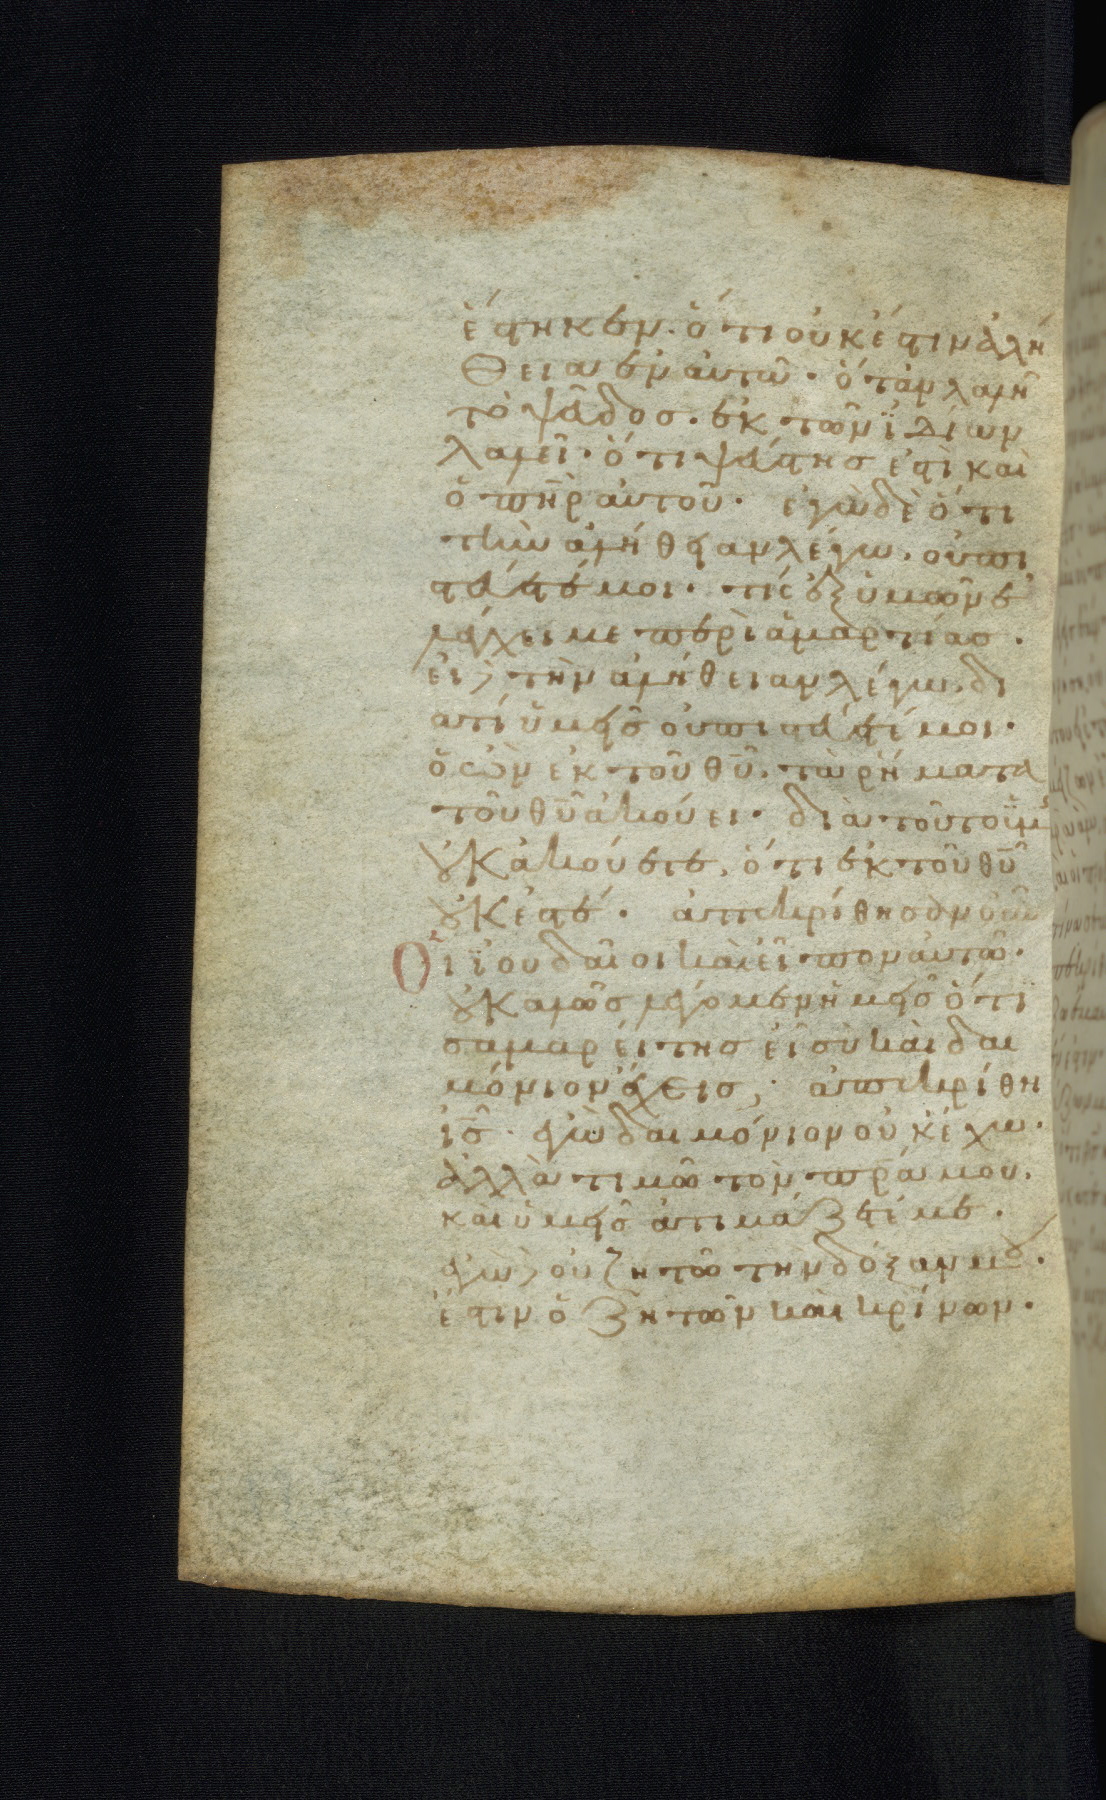 ἕστηκεν. ὅτι οὐκ ἔστιν ἀλή
θεια ἐν αὐτῶ. ὅταν λαλῆ
τὸ ψεῦδος. ἐκ τῶν ϊδίων
λαλεῖ. ὅτι ψεύστης ἐστὶ καὶ
ὁ πηρ αὐτοῦ. ἐγὼ δὲ ὅτι
τὴν ἀλήθειαν λέγω. οὐ πι
στεύετέ μοι. τίς ἐξ ὑμῶν ἐ
λέγχει με περὶ ἁμαρτίας.
εἰ δὲ τὴν ἀλήθειαν λέγω. δι
ατί ὑμεῖς οὐ πιστεύετέ μοι.
ὁ ὢν ἐκ τοῦ θυ. τὰ ρήματα
τοῦ θυ ἀκούει. διὰ τοῦτο ὑμεῖς
οὐκ ἀκούετε, ὅτι ἐκ τοῦ θυ
οὐκ ἐστέ. ἀπεκρίθησαν οὖν
Οἱ ϊουδαῖοι καὶ εἶπον αὐτῶ.
οὐ καλῶς λέγομεν ἡμεῖς ὅτι
σαμαρείτης εἶ σὺ καὶ δαι
μόνιον ἔχεις; ἀπεκρίθη
ις. ἐγὼ δαιμόνιον οὐκ ἔχω.
ἀλλὰ τιμῶ τὸν πρα μου.
καὶ ὑμεῖς ἀτιμάζετέ με.
ἐγὼ δὲ οὐ ζητῶ τὴν δόξαν μου.
ἔστιν ὁ ζητῶν καὶ κρίνων.